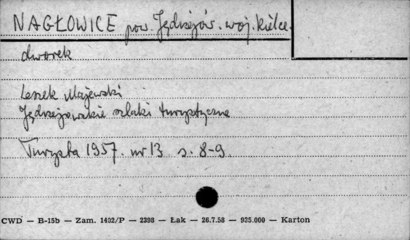 NAGŁOWICE pow. Jędrzejów. woj. Kielce.
dworek
Leszek Majewski
Jędrzejowskie szlaki turystyczne
Turysta 1957. nr 13 s. 8-9.
CWD — B-15b — Zam. 1402/P — 2398 — Łak — 26.7.58 — 935.000 — Karton